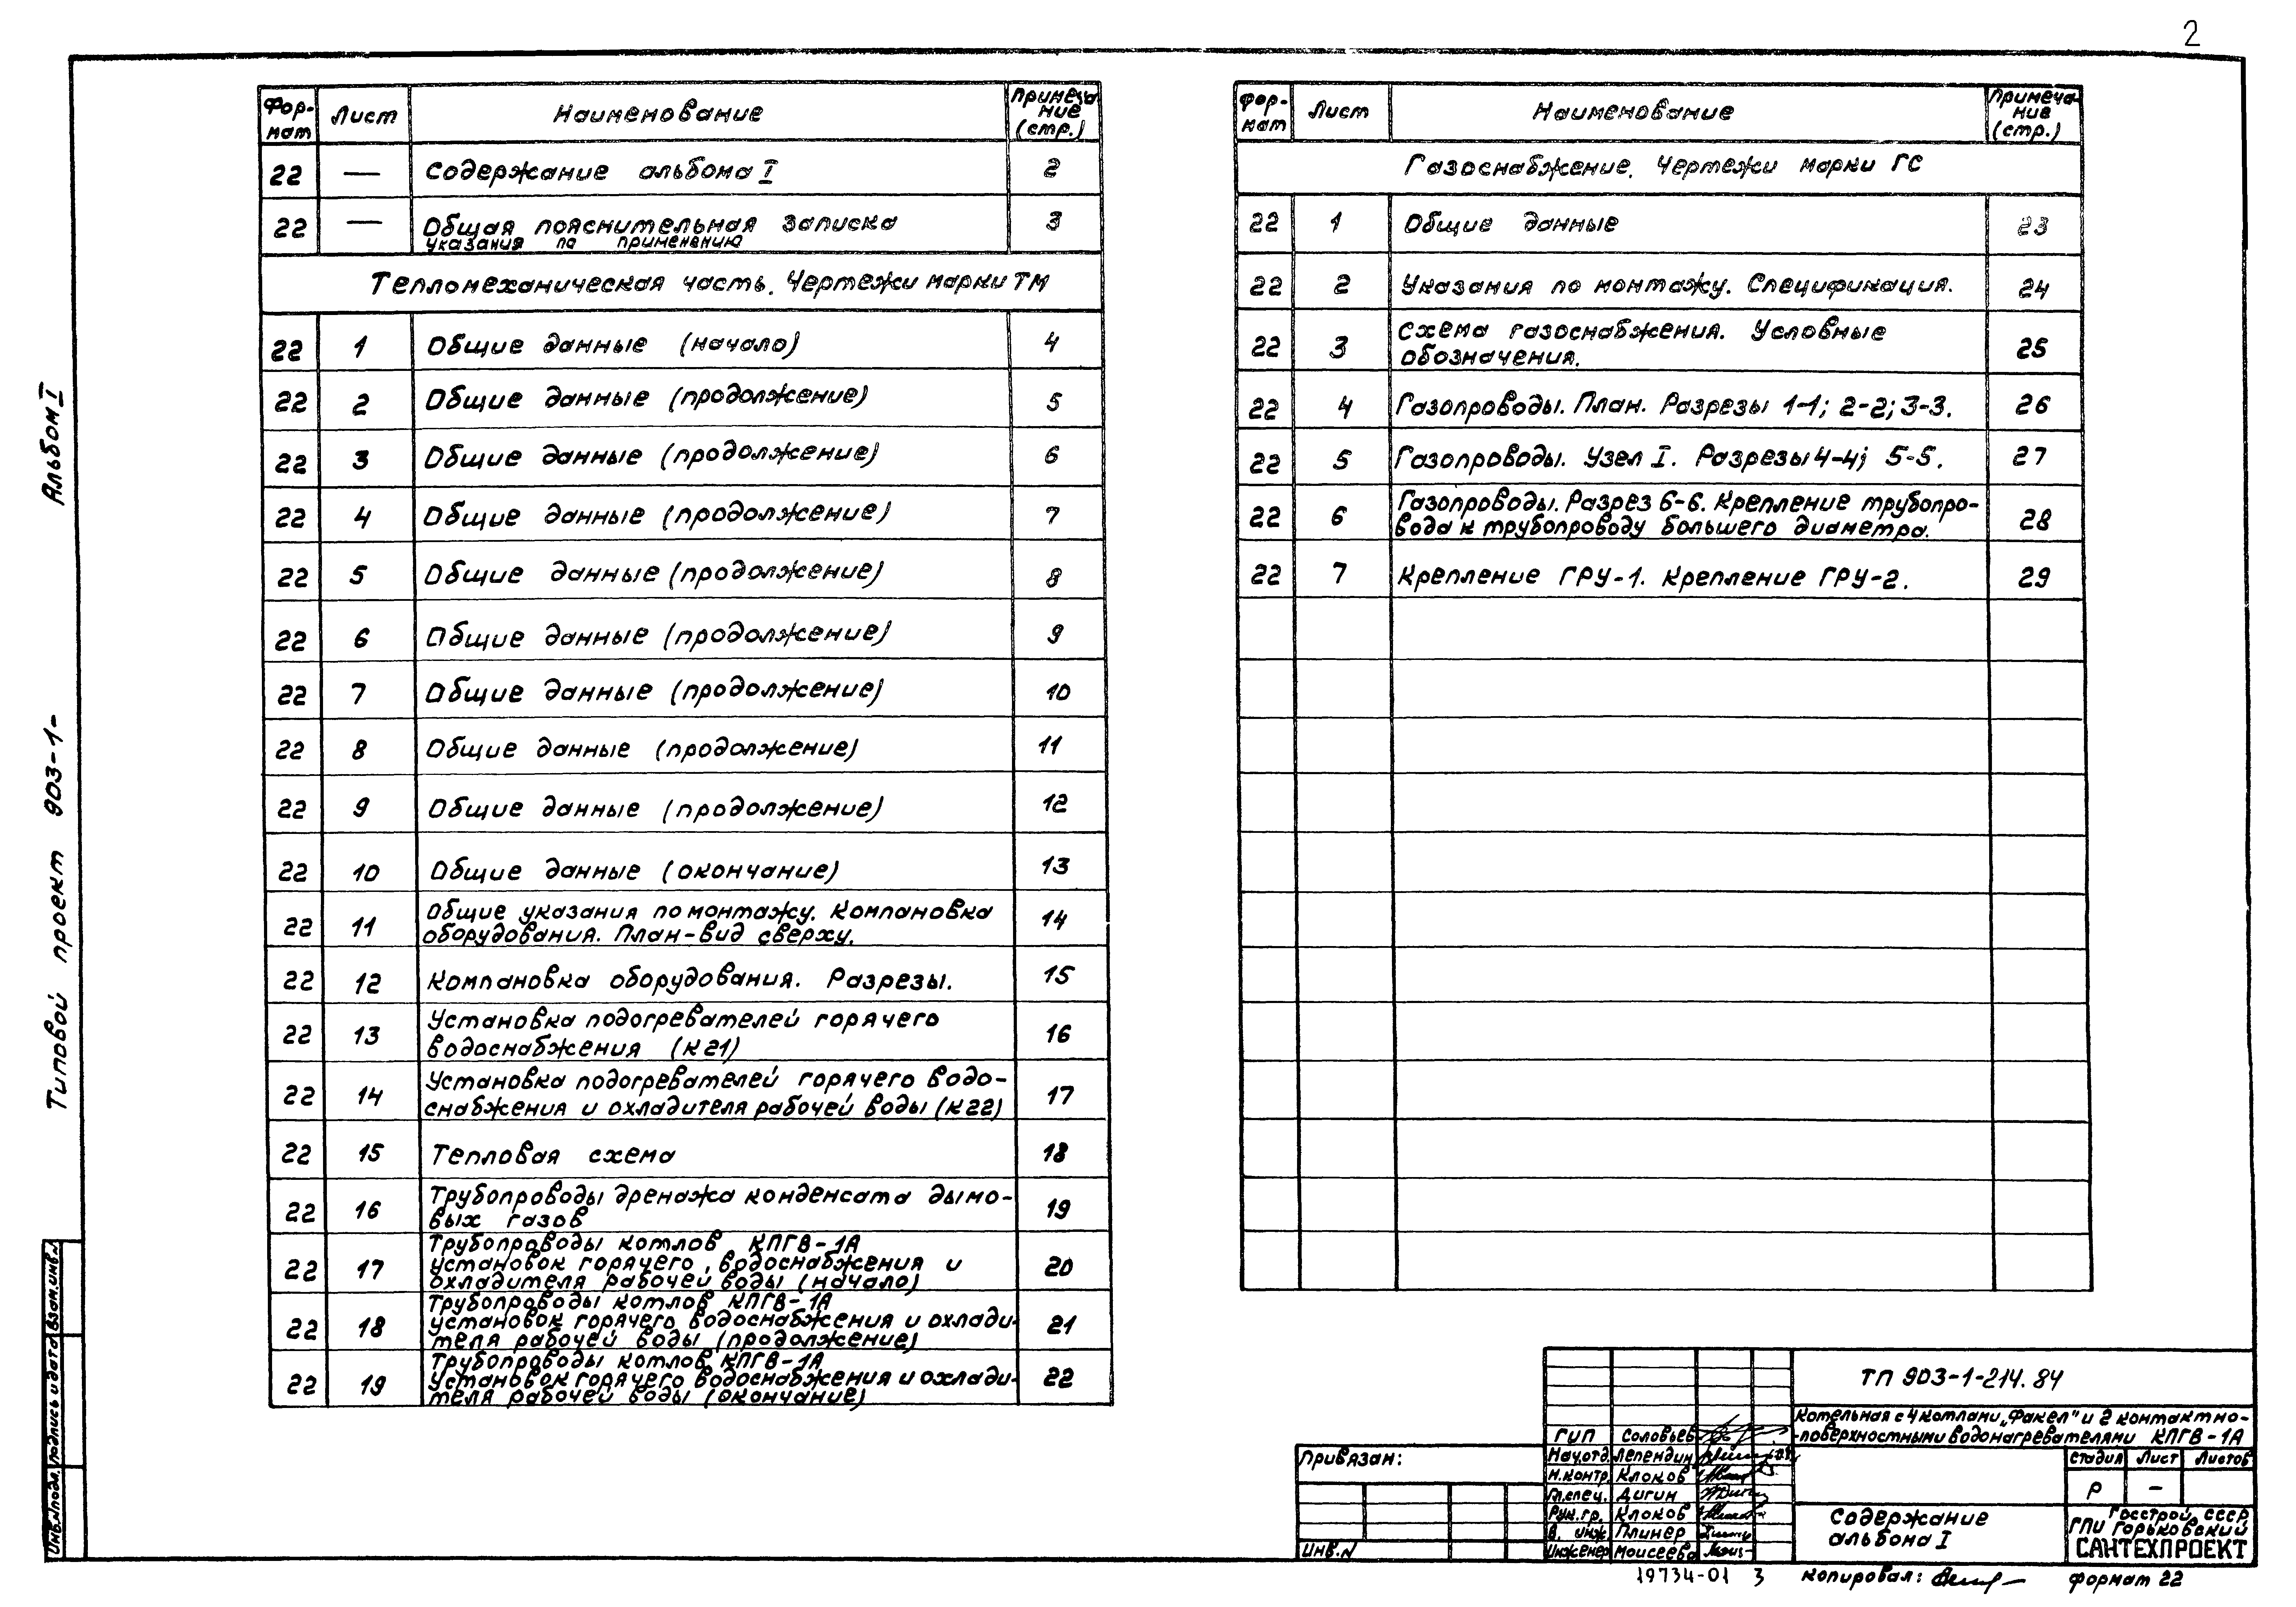 2
Фор-
мат
Лист
Наименование
Примеча
ние
(стр.)
22 — Содержание альбома I 2
22 — Общая пояснительная записка 3
указания по применению
Тепломеханическая часть. Чертежи марки ТМ
22 1 Общие данные (начало) 4
22 2 Общие данные (продолжение) 5
22 3 Общие данные (продолжение) 6
22 4 Общие данные (продолжение) 7
22 5 Общие данные (продолжение) 8
22 6 Общие данные (продолжение) 9
22 7 Общие данные (продолжение) 10
22 8 Общие данные (продолжение) 11
22 9 Общие данные (продолжение) 12
22 10 Общие данные (окончание) 13
22 11 Общие указания по монтажу. Компановка 14
оборудования. План-вид сверху.
22 12 Компановка оборудования. Разрезы. 15
22 13 Установка подогревателей горячего 16
водоснабжения (К21)
22 14 Установка подогревателей горячего водо- 17
снабжения и охладителя рабочей воды (К22)
22 15 Тепловая схема 18
22 16 Трубопроводы дренажа конденсата дымо- 19
вых газов
22 17 Трубопроводы котлов КПГВ-1А 20
установок горячего водоснабжения и
охладителя рабочей воды (начало)
22 18 Трубопроводы котлов КПГВ-1А 21
установок горячего водоснабжения и охлади-
теля рабочей воды (продолжение)
22 19 Трубопроводы котлов КПГВ-1А 22
установок горячего водоснабжения и охлади-
теля рабочей воды (окончание)
Фор-
мат
Лист
Наименование
Примеча-
ние
(стр.)
Газоснабжение. Чертежи марки ГС
22 1 Общие данные 23
22 2 Указания по монтажу. Спецификация. 24
22 3 Схема газоснабжения. Условные 25
обозначения.
22 4 Газопроводы. План. Разрезы 1-1; 2-2; 3-3. 26
22 5 Газопроводы. Узел I. Разрезы 4-4; 5-5. 27
22 6 Газопроводы. Разрез 6-6. Крепление трубопро- 28
вода к трубопроводу большего диаметра.
22 7 Крепление ГРУ-1. Крепление ГРУ-2. 29
Альбом I
Типовой проект 903-1-
Взам.инв.N
Подпись и дата
Инв.Nподл.
Привязан:
Инв.N
ГИП Соловьев
Нач.отд. Лепендин
Н.контр. Клоков
Гл.спец. Дигин
Рук.гр. Клоков
В. инж Плинер
Инженер Моисеева
ТП 903-1-214.84
Котельная с 4 котлами „Факел" и 2 контактно-
-поверхностными водонагревателями КПГВ-1А
Стадия Лист Листов
Р —
Содержание
альбома I
Госстрой СССР
ГПИ Горьковский
САНТЕХПРОЕКТ
19734-01 3
Копировал:
Формат 22